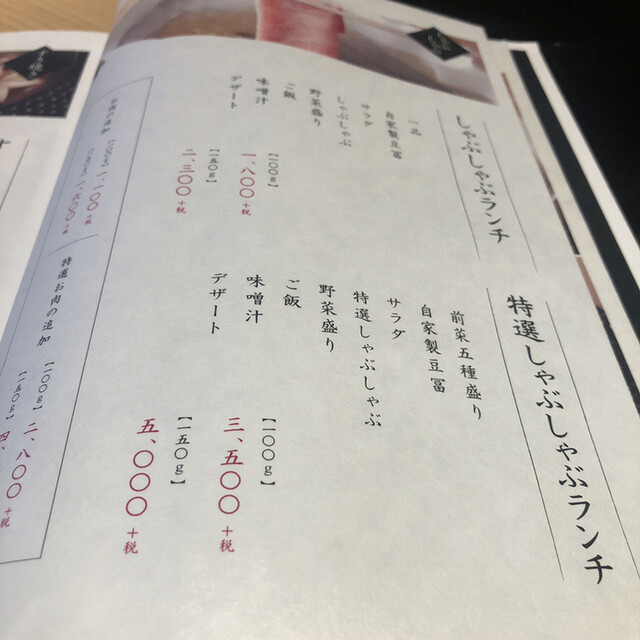 しゃぶしゃぶランチ
一品
自家製豆冨
サラダ
しゃぶしゃぶ
野菜盛り
ご飯
味噌汁
デザート
【一〇〇g】
一、八〇〇+税
【一五〇g】
二、三〇〇+税
特選しゃぶしゃぶランチ
前菜五種盛り
自家製豆冨
サラダ
特選しゃぶしゃぶ
野菜盛り
ご飯
味噌汁
デザート
【一〇〇g】
三、五〇〇+税
【一五〇g】
五、〇〇〇+税
お肉の追加
【一〇〇g】一、一〇〇+税
【一五〇g】一、六〇〇+税
特選お肉の追加
【一〇〇g】二、八〇〇+税
【一五〇g】四、